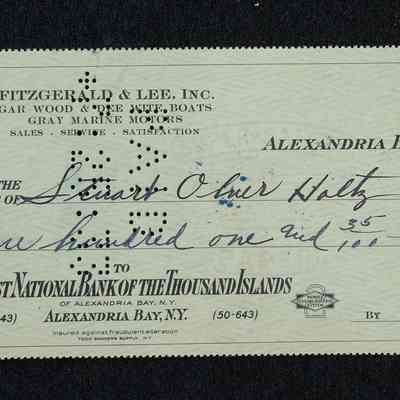 FITZGERALD & LEE, INC.
GAR WOOD & DEE WITE BOATS
GRAY MARINE MOTORS
SALES · SERVICE · SATISFACTION
ALEXANDRIA
THE
OF Stuart Olner Holtz
hundred one and 35/100
TO
ST NATIONAL BANK OF THE THOUSAND ISLANDS
OF ALEXANDRIA BAY, N.Y.
643) ALEXANDRIA BAY, N.Y. (50-643) BY
Insured against fraudulent alteration